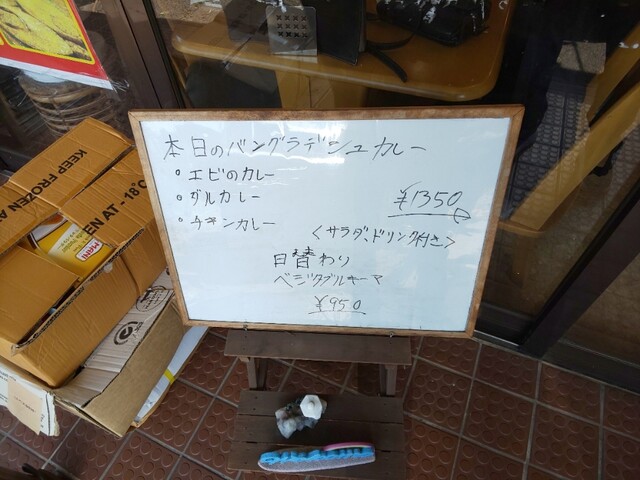 本日のバングラデシュカレー
・エビのカレー
・ダルカレー
・チキンカレー
¥1350
<サラダ、ドリンク付き>
日替わり
ベジタブルキーマ
¥950
KEEP FROZEN A
EN AT -18°C
MANI